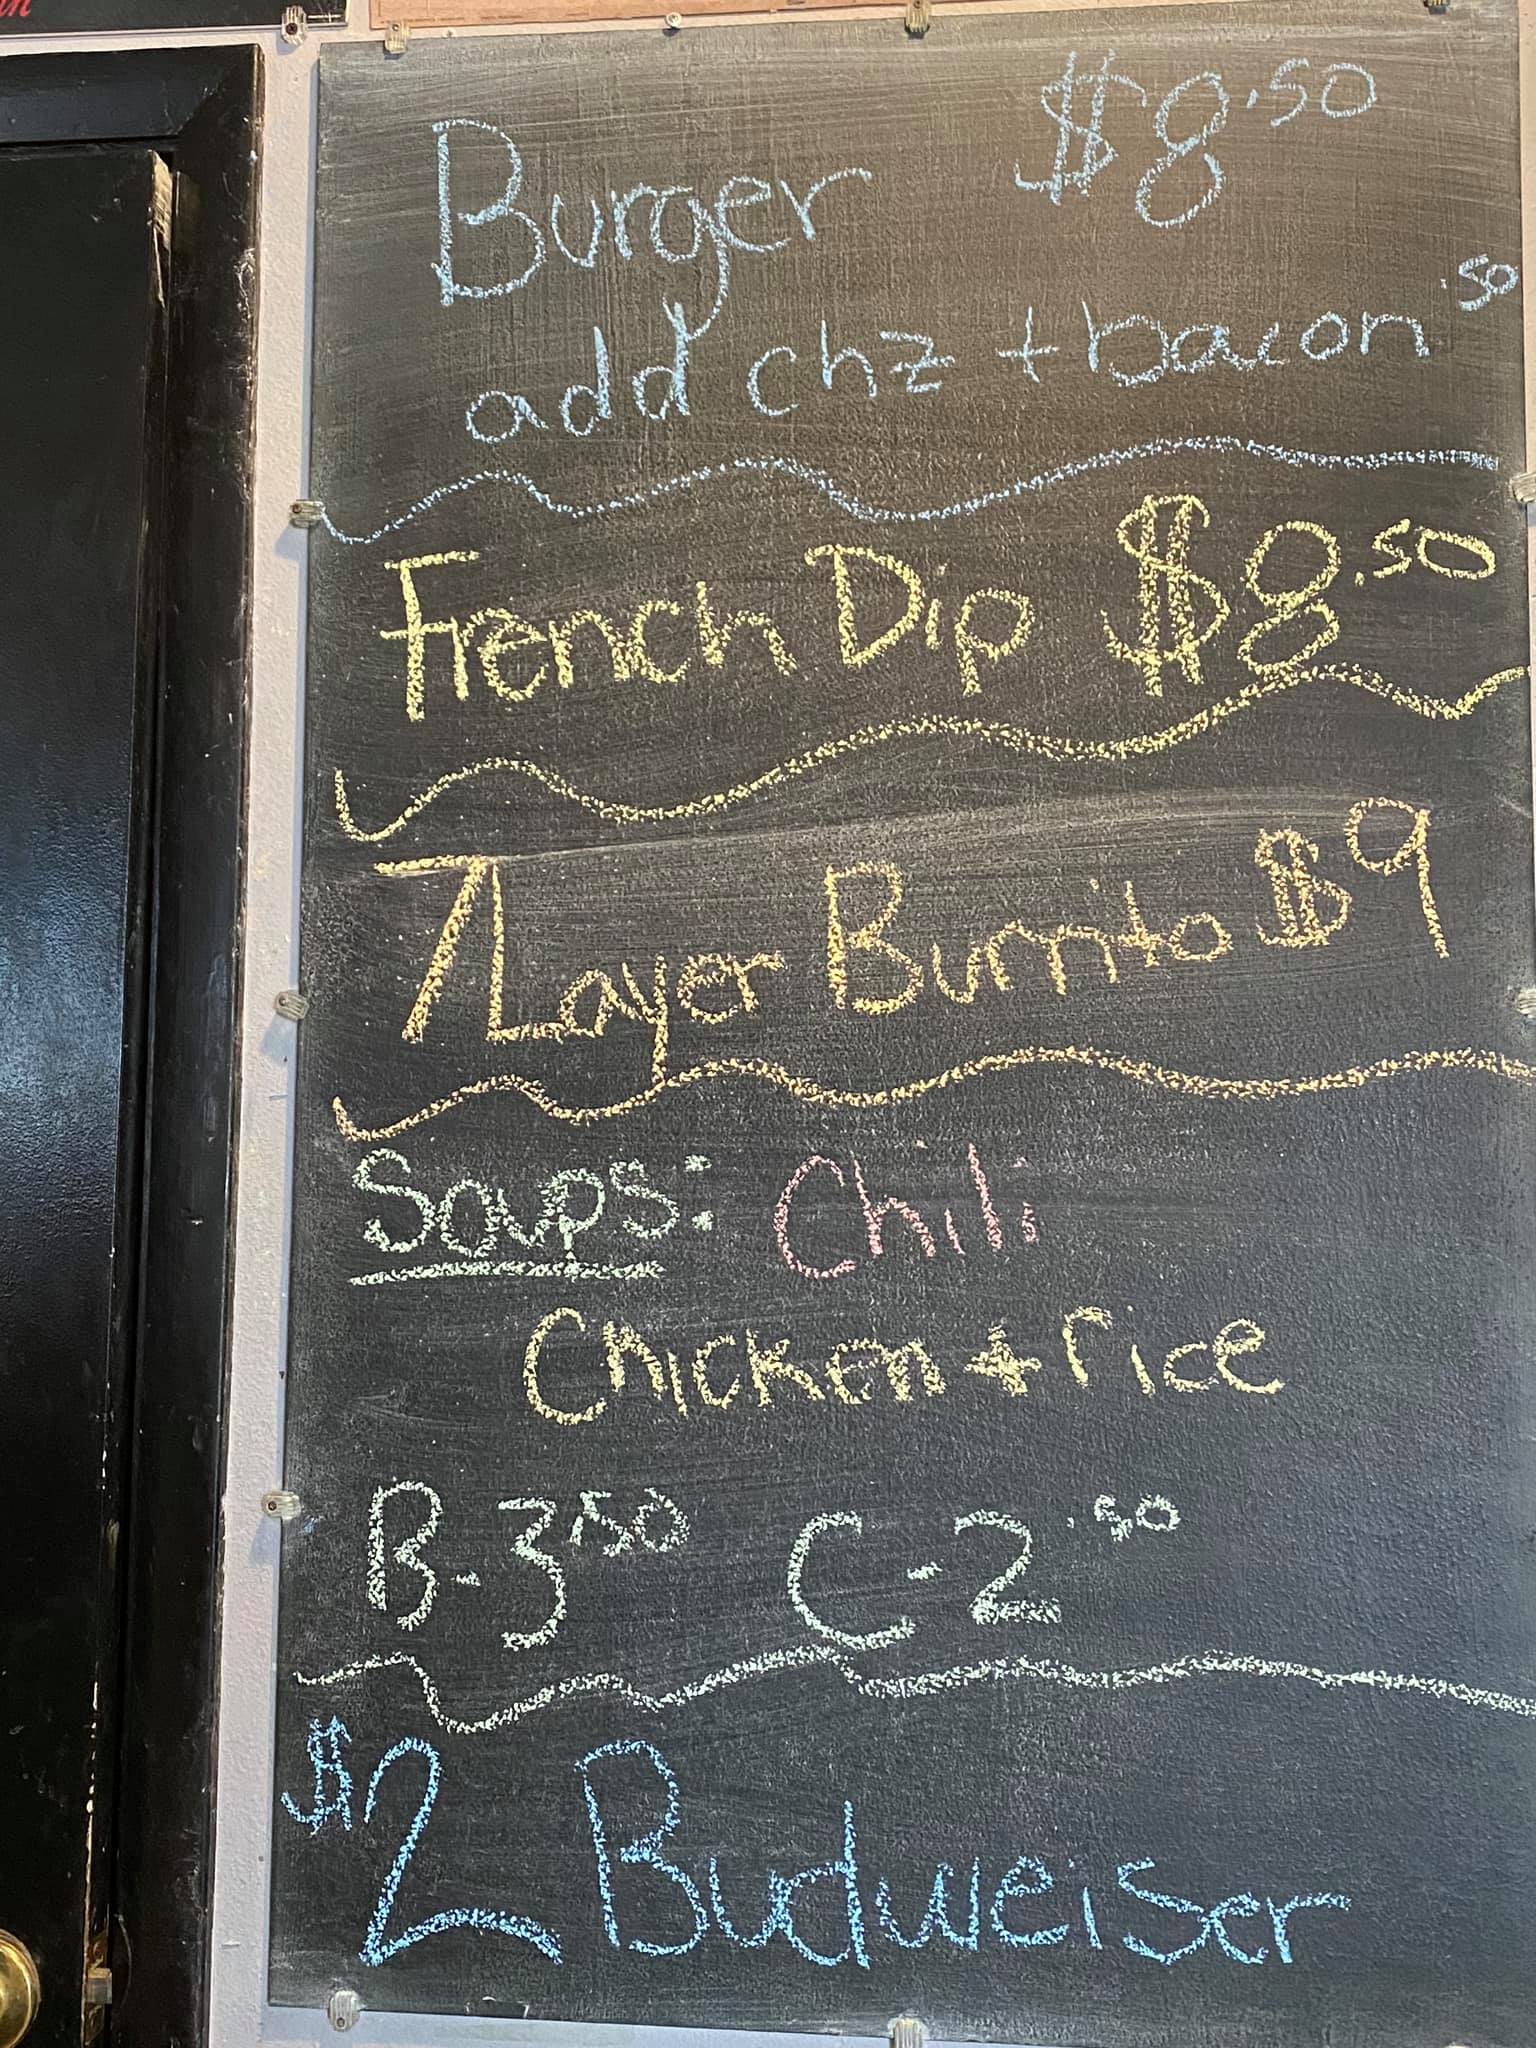 Burger $8.50
add chz + bacon .50
French Dip $8.50
7 Layer Burrito $9
Soups: Chili
Chicken + rice
B-3.50 C-2.50
$2 Budweiser